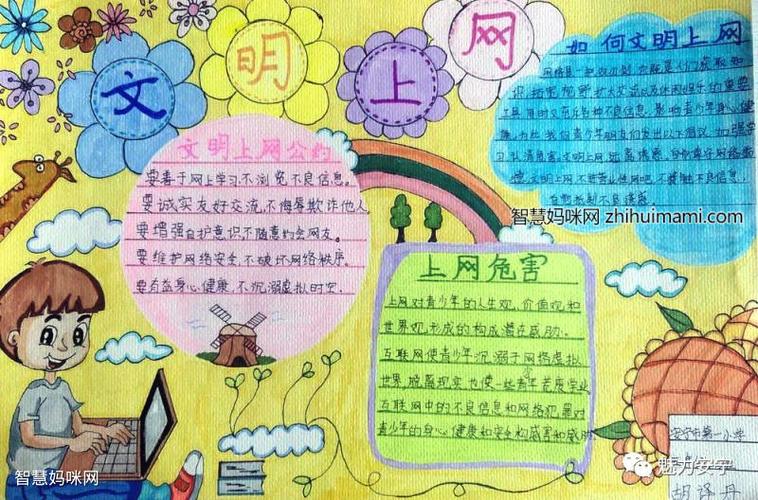 文明上网
文明上网公约
要善于网上学习,不浏览不良信息。
要诚实友好交流,不侮辱欺诈他人
要增强自护意识,不随意约会网友。
要维护网络安全,不破坏网络秩序。
要有益身心健康,不沉溺虚拟时空.
如何文明上网
网络是一把双刃剑,它既是人们获取知
识,拓宽视野,扩大交流以及休闲娱乐的重要
智慧妈咪网 zhihuimami.com
自觉抵制不良诱惑
上网危害
上网对青少年的人生观,价值观和
世界观,形成的构成潜在威胁。
互联网使青少年沉溺于网络虚拟
世界,脱离现实,也使一些青年荒废学业
互联网中的不良信息和网络犯罪对
青少年的身心健康和安全构成危害和威胁
安宁市第一小学
魅力安宁
智慧妈咪网